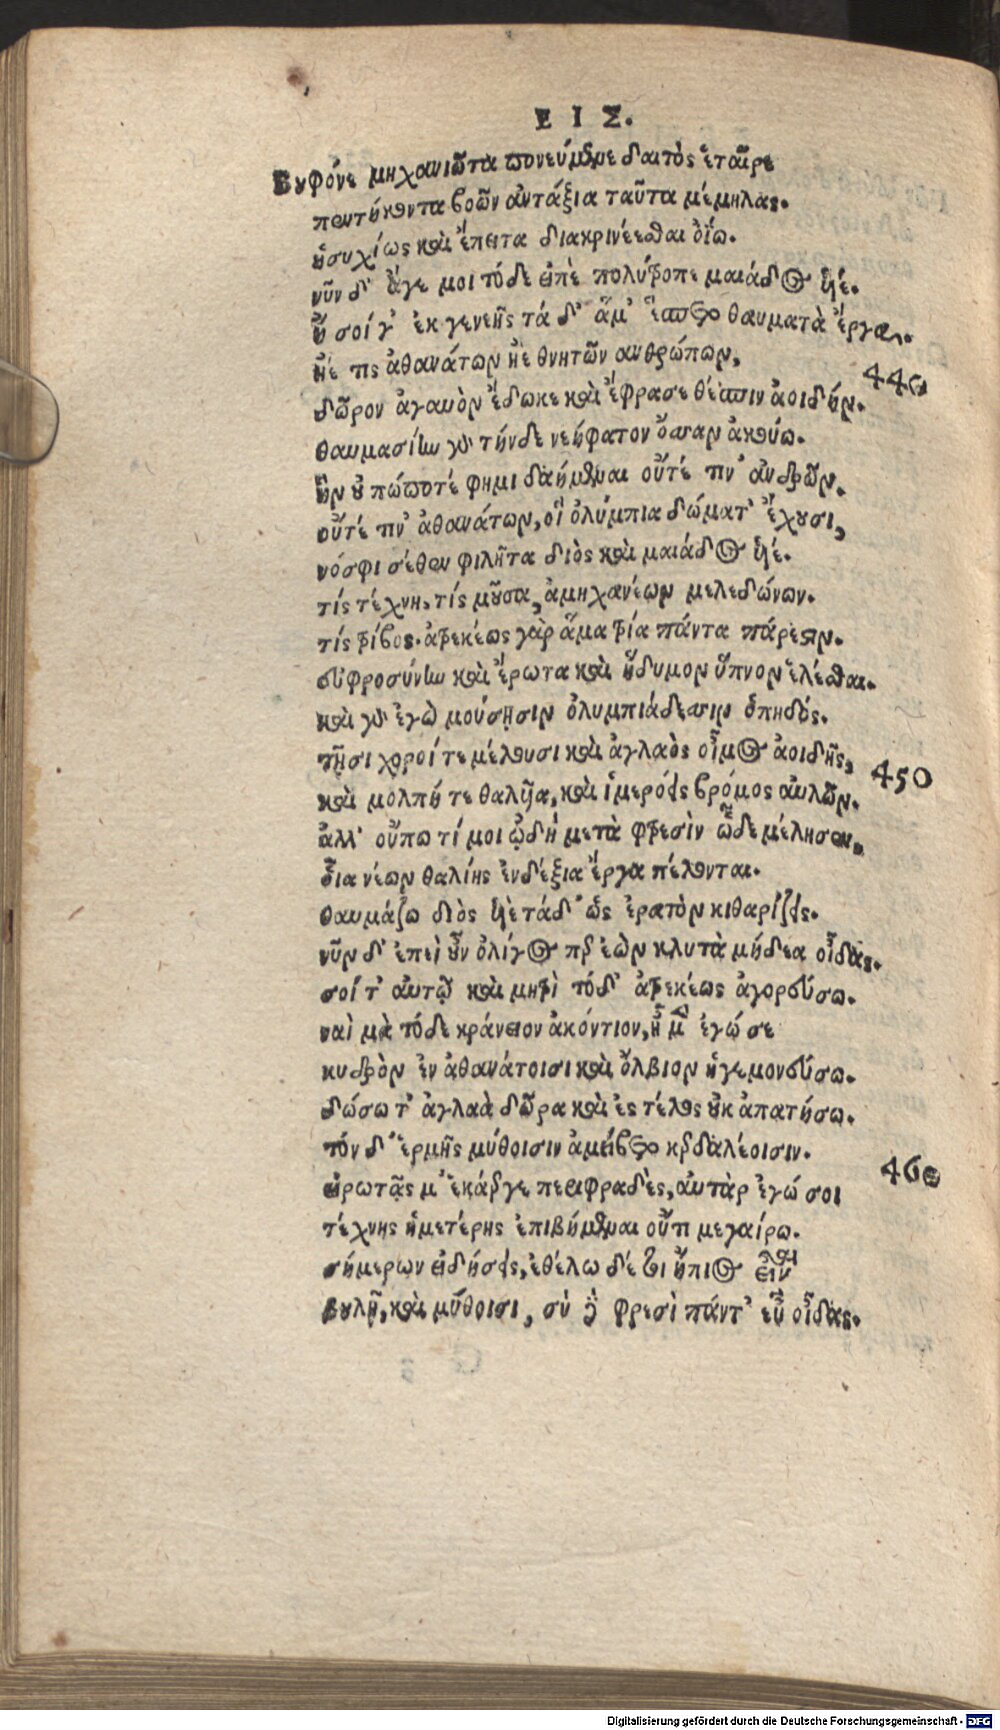 ΕΙΣ.
Βουφόνε μηχανιῶτα πονεύμενε δαιτὸς ἑταῖρε
πεντήκοντα βοῶν ἀντάξια ταῦτα μέμηλας.
ἡσυχίως καὶ ἔπειτα διακρινέεσθαι ὀΐω.
νῦν δ' ἄγε μοι τόδε εἰπὲ πολύτροπε μαιάδος υἱέ.
ἢ σοί γ' ἐκ γενεῆς τά δ' ἅμ' ἕσπετο θαυματὰ ἔργα.
ἠέ τις ἀθανάτων ἠὲ θνητῶν ἀνθρώπων,
440
δῶρον ἀγαυὸν ἔδωκε καὶ ἔφρασε θέσπιν ἀοιδήν.
θαυμασίην γὰρ τήνδε νεήφατον ὄσσαν ἀκούω.
ἣν οὐ πώποτέ φημι δαήμεναι οὔτέ τιν' ἀνδρῶν.
οὔτέ τιν' ἀθανάτων, οἳ ὀλύμπια δώματ' ἔχουσι,
νόσφι σέθεν φιλῆτα διὸς καὶ μαιάδος υἱέ.
τίς τέχνη, τίς μοῦσα, ἀμηχανέων μελεδώνων.
τίς τρίβος. ἀτρεκέως γὰρ ἅμα τρία πάντα πάρεστιν.
εὐφροσύνην καὶ ἔρωτα καὶ ἥδυμον ὕπνον ἑλέσθαι.
καὶ γὰρ ἐγὼ μούσῃσιν ὀλυμπιάδεσσιν ὀπηδός.
τῇσι χοροί τε μέλουσι καὶ ἀγλαὸς οἶμος ἀοιδῆς,
450
καὶ μολπή τε θαλυῖα, καὶ ἱμερόεις βρόμος αὐλῶν.
ἀλλ' οὔπω τί μοι ᾠδὴ μετὰ φρεσὶν ὧδε μέλησεν,
οἷα νέων θαλίης ἐνδέξια ἔργα πέλονται.
θαυμάζω διὸς υἱὲ τάδ' ὡς ἐρατὸν κιθαρίζεις.
νῦν δ' ἐπεὶ οὖν ὀλίγος περ ἐὼν κλυτὰ μήδεα οἶδας.
σοί τ' αὐτῷ καὶ μητρὶ τόδ' ἀτρεκέως ἀγορεύσω.
ναὶ μὰ τόδε κράνειον ἀκόντιον, ἦ μὲν ἐγώ σε
κυδρὸν ἐν ἀθανάτοισι καὶ ὄλβιον ἡγεμονεύσω.
δώσω τ' ἀγλαὰ δῶρα καὶ ἐς τέλος οὐκ ἀπατήσω.
τόν δ' ἑρμῆς μύθοισιν ἀμείβετο κερδαλέοισιν.
460
εἰρωτᾷς μ' ἑκάεργε περιφραδὲς, αὐτὰρ ἐγώ σοι
τέχνης ἡμετέρης ἐπιβήμεναι οὔτι μεγαίρω.
σήμερον εἰδήσεις, ἐθέλω δέ τοι ἤπιος εἶναι
βουλῇ, καὶ μύθοισι, σὺ δὲ φρεσὶ πάντ' εὖ οἶδας.
Digitalisierung gefördert durch die Deutsche Forschungsgemeinschaft - DFG